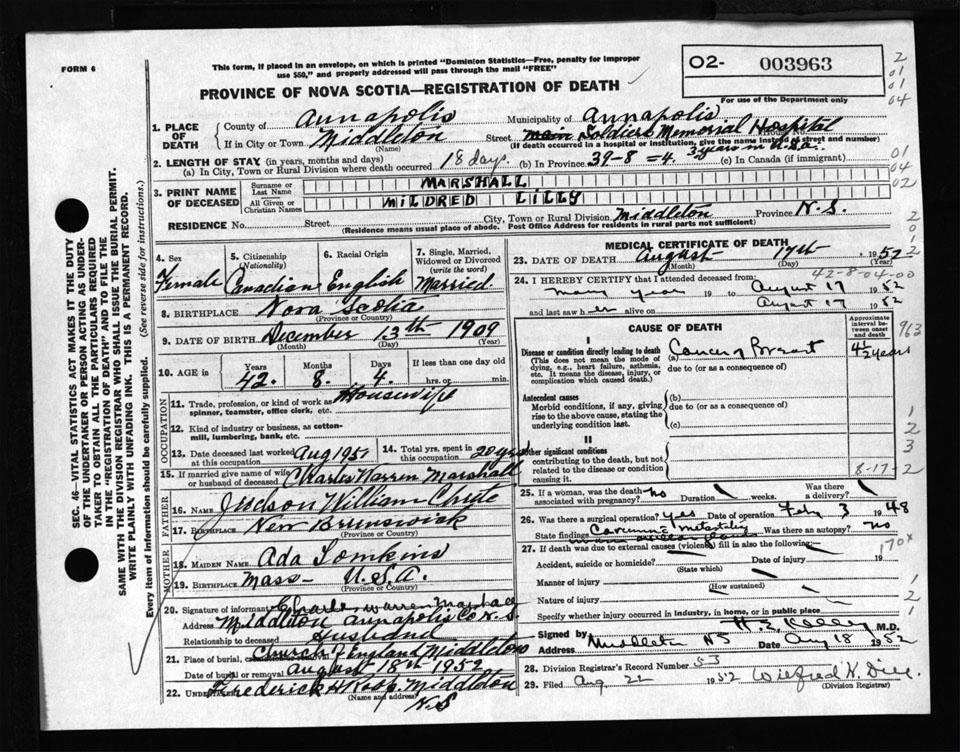 FORM 6
This form, if placed in an envelope, on which is printed "Dominion Statistics—Free, penalty for improper
use $50," and properly addressed will pass through the mail "FREE"
PROVINCE OF NOVA SCOTIA—REGISTRATION OF DEATH
O2- 003963
For use of the Department only
2
01
01
04
1. PLACE OF DEATH
County of Annapolis Municipality of Annapolis
If in City or Town Middleton Street Soldiers Memorial Hospital House No.
(Name) (If death occurred in a hospital or institution, give the name instead of street and number)
2. LENGTH OF STAY (in years, months and days) 3 years in U.S.A.
(a) In City, Town or Rural Division where death occurred 18 days. (b) In Province 39-8-4. (c) In Canada (if immigrant)
01
04
02
3. PRINT NAME OF DECEASED
Surname or Last Name MARSHALL
All Given or Christian Names MILDRED LILLY
RESIDENCE No. Street City, Town or Rural Division Middleton Province N.S.
(Residence means usual place of abode. Post Office Address for residents in rural parts not sufficient)
SEC. 46—VITAL STATISTICS ACT MAKES IT THE DUTY
OF THE UNDERTAKER OR PERSON ACTING AS UNDER-
TAKER TO OBTAIN ALL THE PARTICULARS REQUIRED
IN THE "REGISTRATION OF DEATH" AND TO FILE THE
SAME WITH THE DIVISION REGISTRAR WHO SHALL ISSUE THE BURIAL PERMIT.
WRITE PLAINLY WITH UNFADING INK. THIS IS A PERMANENT RECORD.
Every item of information should be carefully supplied. (See reverse side for instructions.)
4. Sex Female
5. Citizenship (Nationality) Canadian
6. Racial Origin English
7. Single, Married, Widowed or Divorced (write the word) Married.
8. BIRTHPLACE Nova Scotia
(Province or Country)
9. DATE OF BIRTH December 13th 1909
(Month) (Day) (Year)
10. AGE in Years 42. Months 8. Days 4. If less than one day old hrs. or min.
OCCUPATION
11. Trade, profession or kind of work as spinner, teamster, office clerk, etc. Housewife
12. Kind of industry or business, as cotton-mill, lumbering, bank, etc.
13. Date deceased last worked at this occupation Aug 1951
14. Total yrs. spent in this occupation 20 yrs
15. If married give name of wife or husband of deceased Charles Warren Marshall
FATHER
16. NAME Judson William Chute
17. BIRTHPLACE New Brunswick
(Province or Country)
MOTHER
18. MAIDEN NAME Ada Tomkins
19. BIRTHPLACE Mass- U.S.A.
(Province or Country)
20. Signature of informant Charles Warren Marshall
Address Middleton Annapolis Co N.S.
Relationship to deceased Husband
21. Place of burial, Church of England Middleton
Date of burial or removal August 18th 1952
22. UNDERTAKER Frederick H Middleton
(Name and address) N.S
MEDICAL CERTIFICATE OF DEATH
23. DATE OF DEATH August 17th 1952
(Month) (Day)
2
0
1
2
2
42-8-04-00
24. I HEREBY CERTIFY that I attended deceased from:
many year 19 to August 17 1952
and last saw her alive on August 17 1952
CAUSE OF DEATH
Approximate interval between onset and death
963
I
Disease or condition directly leading to death (a) Cancer of Breast 4½ years
(This does not mean the mode of dying, e.g., heart failure, asthenia, etc. It means the disease, injury, or complication which caused death.)
due to (or as a consequence of)
Antecedent causes
Morbid conditions, if any, giving rise to the above cause, stating the underlying condition last.
(b)
due to (or as a consequence of)
(c)
1
2
3
II
Other significant conditions
contributing to the death, but not related to the disease or condition causing it.
8-17-2
25. If a woman, was the death associated with pregnancy? no Duration weeks. Was there a delivery?
26. Was there a surgical operation? yes Date of operation Feby 3 1948
State findings Was there an autopsy? no
27. If death was due to external causes (violence) fill in also the following:
170x
Accident, suicide or homicide? Date of injury 19
(State which)
Manner of injury
(How sustained)
Nature of injury
1
2
Specify whether injury occurred in industry, in home, or in public place
Signed by H. E. Kelley M.D.
Address Middleton NS Date Aug 18 1952
28. Division Registrar's Record Number 53
29. Filed Aug 22 1952 Wilfred K.
(Division Registrar)